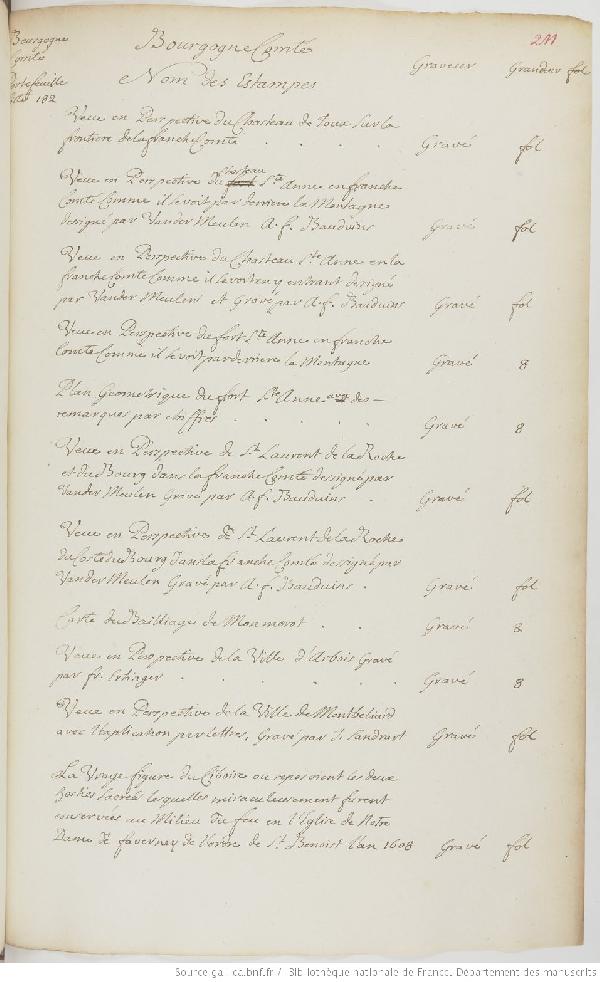 Bourgogne
Comté
Portefeuille
182
Bourgogne Comté
Nom des Estampes
Graveur Grandeur fol
211
Veue en Perspective du Chasteau de Joux sur la
frontiere de la franche Comté . . . . Gravé fol
Veue en Perspective du Chasteau Ste Anne en franche
Comté Comme il se voit par derriere la Montagne
designé par Vander Meulen A. f. Bauduins Gravé fol
Veue en Perspective du Chasteau Ste Anne en la
franche Comté Comme il se voit en y entrant designé
par Vander Meulen et Gravé par A. f. Bauduins Gravé fol
Veue en Perspective du fort Ste Anne en franche
Comté Comme il se voit par derriere la Montagne Gravé 8
Plan Geometrique du fort Ste Anne avec des
remarques par chiffres . . . . Gravé 8
Veue en Perspective de St Laurent de la Roche
et du Bourg dans la franche Comté designé par
Vander Meulen Gravé par A. f. Bauduins . Gravé fol
Veue en Perspective de St Laurent de la Roche
du Costé du Bourg dans la franche Comté designé par
Vander Meulen Gravé par A. f. Bauduins . Gravé fol
Carte du Bailliage de Monmorot . . Gravé 8
Veue en Perspective de la Ville d'Arbois Gravé
par fr. . . . . Gravé 8
Veue en Perspective de la Ville de Montbeliard
avec l'aplication par lettres, Gravé par J. Sandrart Gravé fol
La Vraye figure du Ciboire ou reposoient les deux
hosties sacrés lesquelles miraculeusement furent
conservées au Milieu du feu en l'Eglise de Notre
Dame de faverney de l'ordre de St Benoist l'an 1608 Gravé fol
Source gallica.bnf.fr / Bibliothèque nationale de France. Département des manuscrits